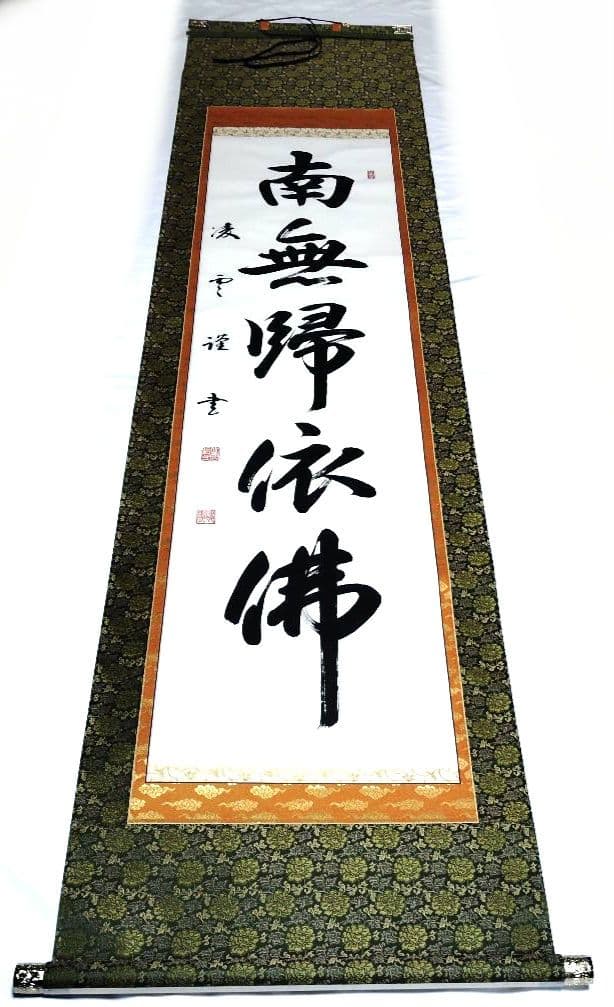 南無歸依佛
凌雲謹書